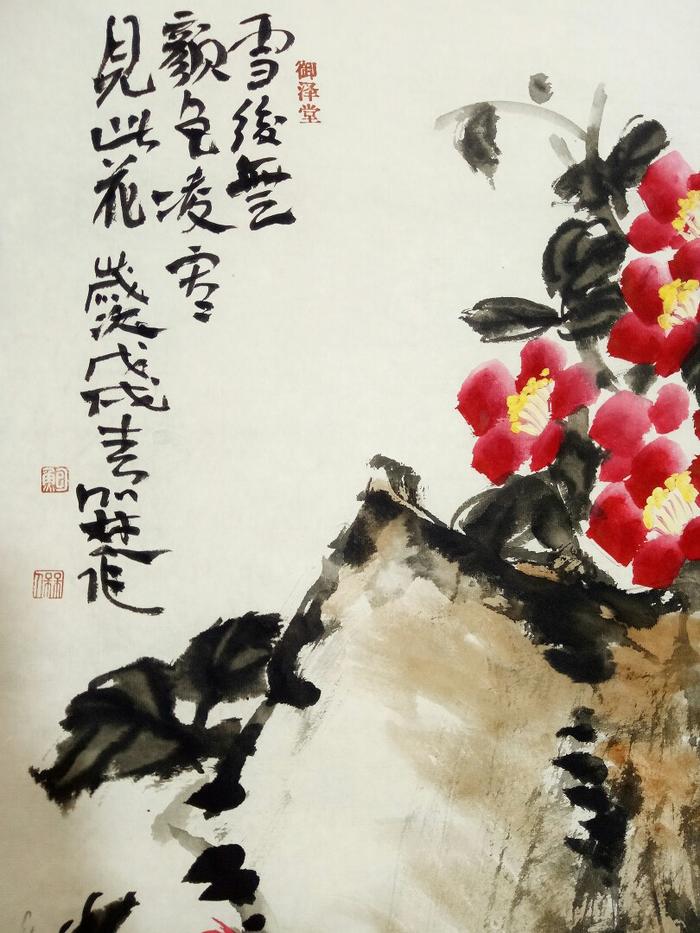 御泽堂
雪後無
顏色凌寒
見此花 歲次戊戌 作